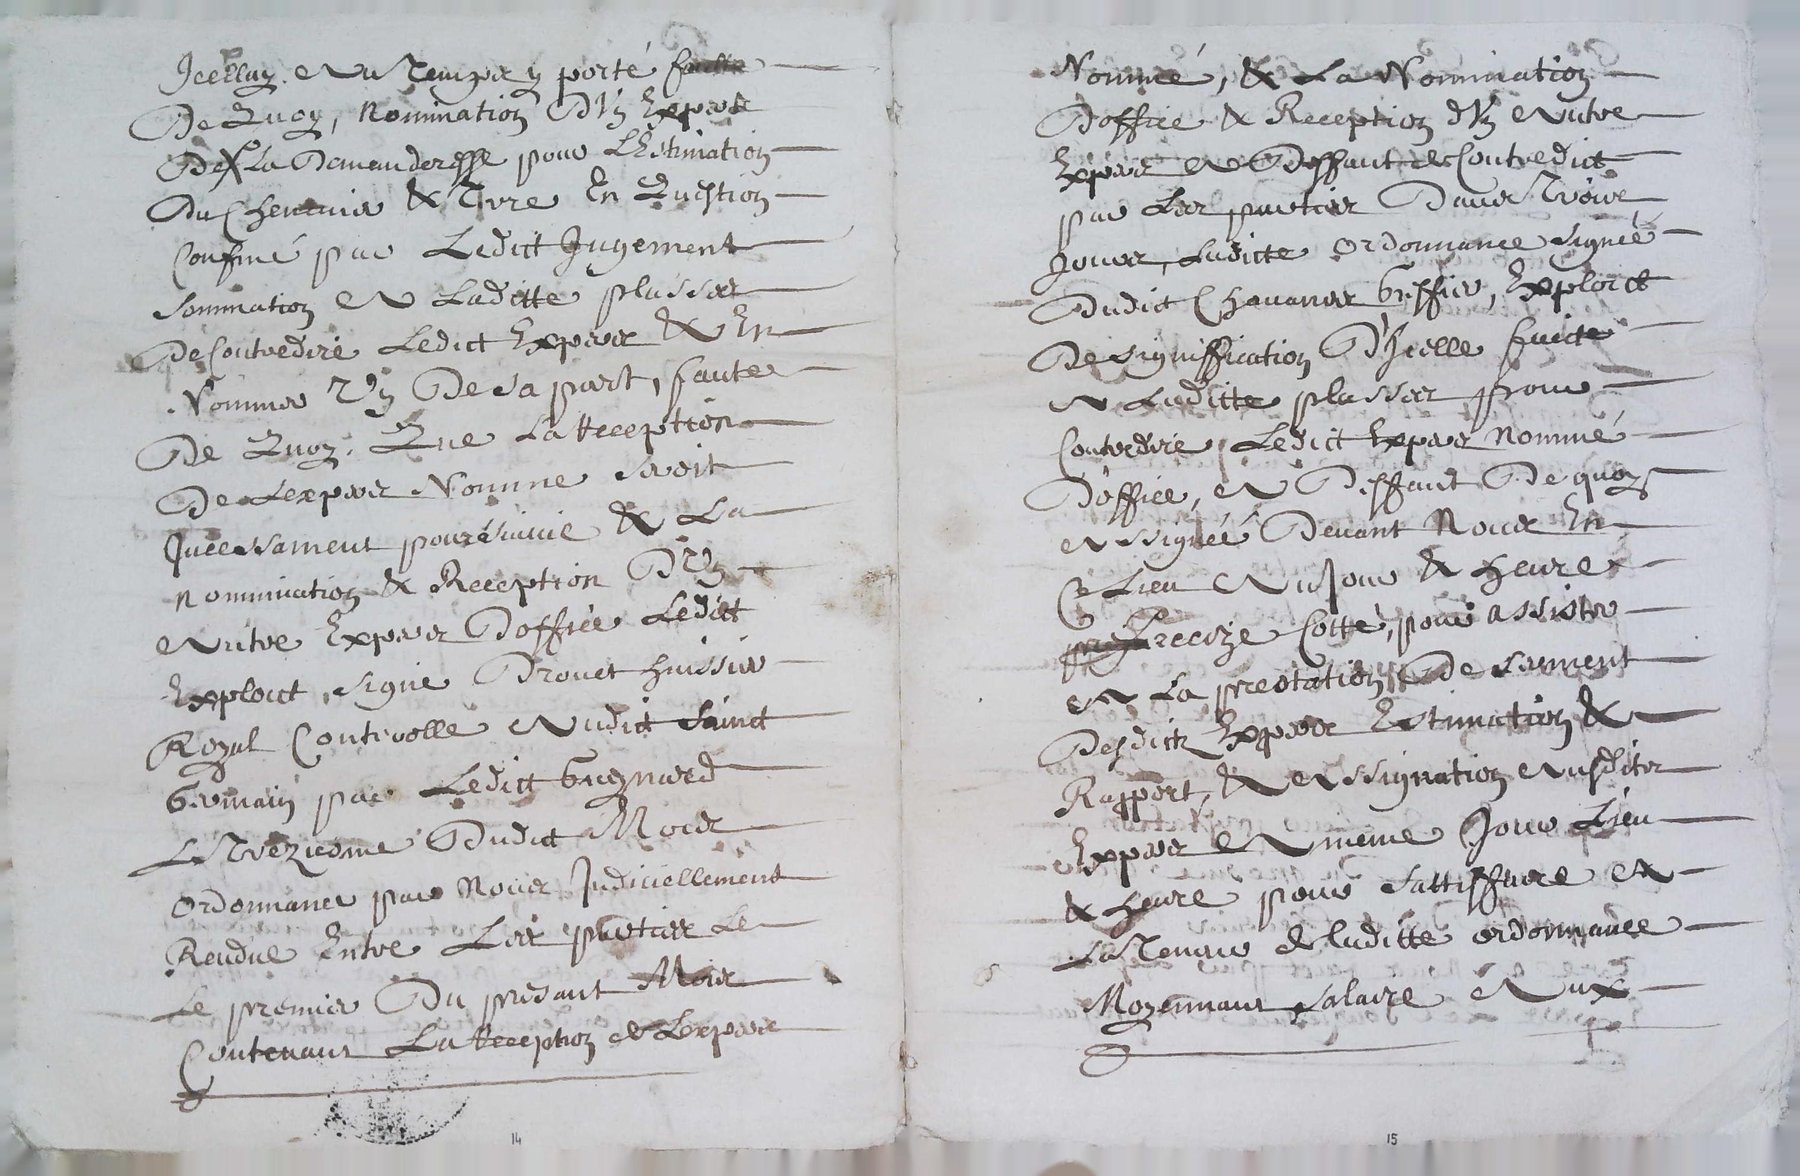 Jcelluy. au Temps y porté faulte
De Quoy, nomination D'un Expert
De La Demanderesse pour L'Estimation
Du Chenevis & Ivre En Question
Confiné par Ledict Jugement
sommation a Laditte plassar
De Contredire Ledict Expert & En
Nommer Un De sa part, faute
De Quoy. Que La Reception
De Lexpert Nomme seroit
Jncessament poursuivie & La
nomination & Reception D'un
autre Expert D'office Ledict
Exploict, signé Drouet huissier
Royal Controolle audict Sainct
Germain par Ledict Guynard
Le Treziesme Dudict Mois
ordonnance par Nous Judiciellement
Rendue Entre Les parties Le
Le premier Du présant Mois
Contenant La Reception de Lexpert
14
Nommé, & La Nomination
D'office & Reception d'Un autre
Expert a Deffaut de Contredict
par Les parties Dans Trois
Jours, Ladicte ordonnance signée
Dudict Chavanes Greffier, Exploict
De signiffication D'Jcelle faicte
a Ladicte plassar pour
Contredire Ledict Expert nommé
D'office, a Deffaut De quoy
assignée Devant Nous En
Ce Lieu au Jour & heure
Treeize Cotté, pour assister
a La prestation De serment
Desdicts Experts Estimation &
Rapport, & assignation ausdits
Experts a meme Jour Lieu
& heure pour sattiffaire a
La Teneur de laditte ordonnance
Moyennant salaire aux
15